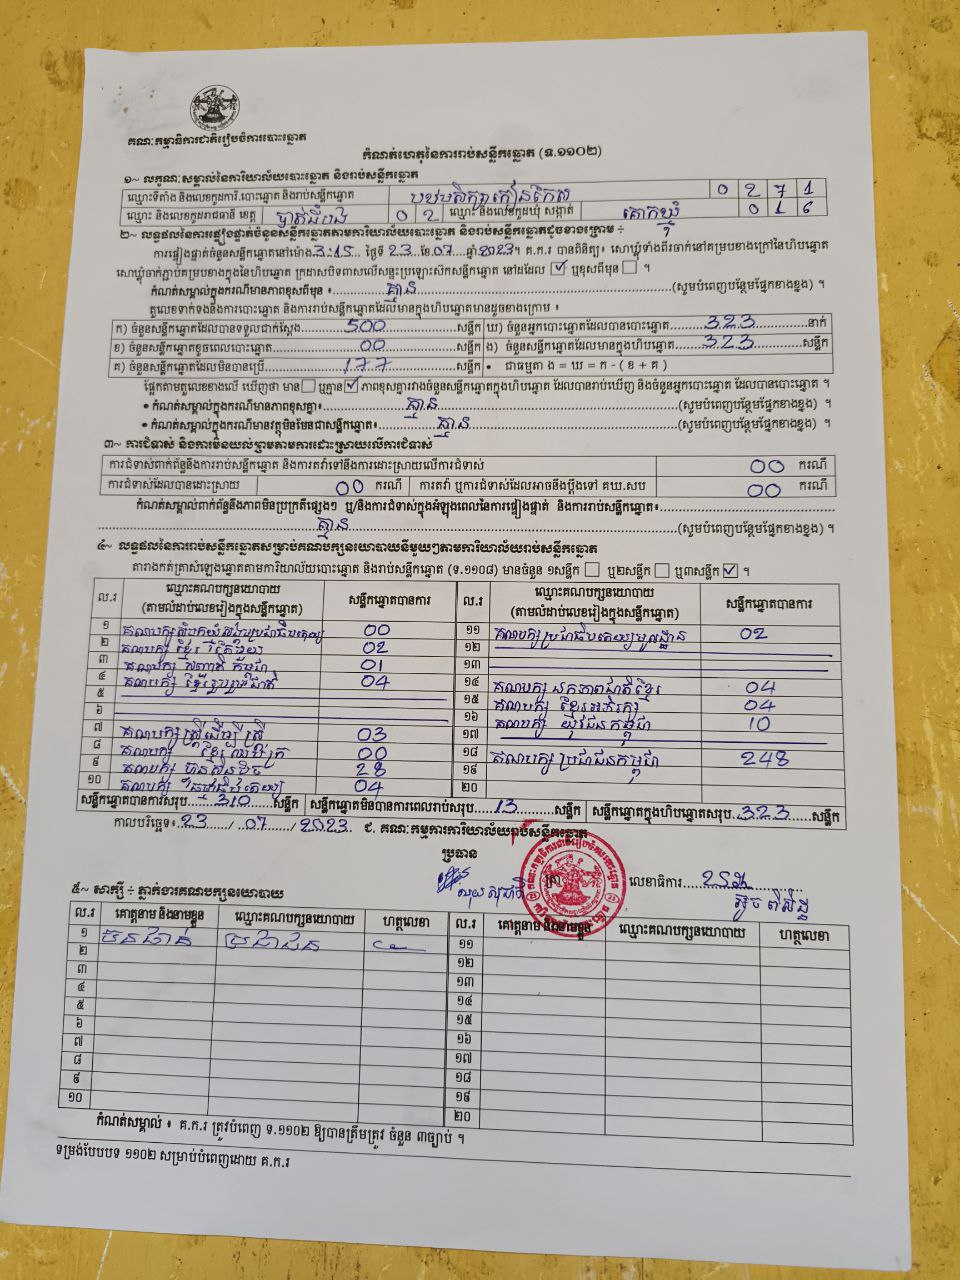 គណៈកម្មាធិការជាតិរៀបចំការបោះឆ្នោត
កំណត់ហេតុនៃការរាប់សន្លឹកឆ្នោត (ទ.១១០២)
១~ លក្ខណៈសម្គាល់នៃការិយាល័យបោះឆ្នោត និងរាប់សន្លឹកឆ្នោត
ឈ្មោះទីតាំង និងលេខកូដការិ.បោះឆ្នោត និងរាប់សន្លឹកឆ្នោត 0 2 7 1
ឈ្មោះ និងលេខកូដរាជធានី ខេត្ត 0 2 ឈ្មោះ និងលេខកូដឃុំ សង្កាត់ គោកឃ្មុំ 0 1 6
២~ លទ្ធផលនៃការផ្ទៀងផ្ទាត់ចំនួនសន្លឹកឆ្នោតតាមការិយាល័យបោះឆ្នោត និងរាប់សន្លឹកឆ្នោតដូចខាងក្រោម ÷
ការផ្ទៀងផ្ទាត់ចំនួនសន្លឹកឆ្នោតនៅម៉ោង 3:15 ថ្ងៃទី 23 ខែ 07 ឆ្នាំ 2023។ គ.ក.រ បានពិនិត្យ ៖ សោឃ្មុំទាំងពីរចាក់នៅគម្របខាងក្រៅនៃហិបឆ្នោត
សោឃ្មុំចាក់ភ្ជាប់គម្របខាងក្នុងនៃហិបឆ្នោត ក្រដាសបិទពាសលើសន្ទះប្រឡោះសឹកសន្លឹកឆ្នោត នៅដដែល ☑ ឬខុសពីមុន ☐ ។
កំណត់សម្គាល់ក្នុងករណីមានភាពខុសពីមុន ៖ គ្មាន (សូមបំពេញបន្ថែមផ្នែកខាងខ្នង) ។
តួលេខទាក់ទងនឹងការបោះឆ្នោត និងការរាប់សន្លឹកឆ្នោតដែលមានក្នុងហិបឆ្នោតមានដូចខាងក្រោម ៖
ក) ចំនួនសន្លឹកឆ្នោតដែលបានទទួលជាក់ស្តែង 500 សន្លឹក ឃ) ចំនួនអ្នកបោះឆ្នោតដែលបានបោះឆ្នោត 323 នាក់
ខ) ចំនួនសន្លឹកឆ្នោតខូចពេលបោះឆ្នោត 00 សន្លឹក ង) ចំនួនសន្លឹកឆ្នោតដែលមានក្នុងហិបឆ្នោត 323 សន្លឹក
គ) ចំនួនសន្លឹកឆ្នោតដែលមិនបានប្រើ 177 សន្លឹក • ជាធម្មតា ង = ឃ = ក - ( ខ + គ )
ផ្អែកតាមតួលេខខាងលើ ឃើញថា មាន ☐ ឬគ្មាន ☑ ភាពខុសគ្នារវាងចំនួនសន្លឹកឆ្នោតក្នុងហិបឆ្នោត ដែលបានរាប់ឃើញ និងចំនួនអ្នកបោះឆ្នោត ដែលបានបោះឆ្នោត ។
• កំណត់សម្គាល់ក្នុងករណីមានភាពខុសគ្នា៖ គ្មាន (សូមបំពេញបន្ថែមផ្នែកខាងខ្នង) ។
• កំណត់សម្គាល់ក្នុងករណីមានវត្ថុមិនមែនជាសន្លឹកឆ្នោត៖ គ្មាន (សូមបំពេញបន្ថែមផ្នែកខាងខ្នង) ។
៣~ ការជំទាស់ និងការមិនយល់ព្រមតាមការដោះស្រាយលើការជំទាស់
ការជំទាស់ពាក់ព័ន្ធនឹងការរាប់សន្លឹកឆ្នោត និងការតវ៉ាទៅនឹងការដោះស្រាយលើការជំទាស់ 00 ករណី
ការជំទាស់ដែលបានដោះស្រាយ 00 ករណី ការតវ៉ា ឬការជំទាស់ដែលអាចនឹងប្តឹងទៅ គឃ.សប 00 ករណី
កំណត់សម្គាល់ពាក់ព័ន្ធនឹងភាពមិនប្រក្រតីផ្សេងៗ ឬ/និងការជំទាស់ក្នុងអំឡុងពេលនៃការផ្ទៀងផ្ទាត់ និងការរាប់សន្លឹកឆ្នោត៖
គ្មាន (សូមបំពេញបន្ថែមផ្នែកខាងខ្នង) ។
៤~ លទ្ធផលនៃការរាប់សន្លឹកឆ្នោតសម្រាប់គណបក្សនយោបាយនីមួយៗតាមការិយាល័យរាប់សន្លឹកឆ្នោត
តារាងកត់ត្រាសំឡេងឆ្នោតតាមការិយាល័យបោះឆ្នោត និងរាប់សន្លឹកឆ្នោត (ទ.១១០៨) មានចំនួន ១សន្លឹក ☐ ឬ២សន្លឹក ☐ ឬ៣សន្លឹក ☑ ។
ល.រ ឈ្មោះគណបក្សនយោបាយ (តាមលំដាប់លេខរៀងក្នុងសន្លឹកឆ្នោត) សន្លឹកឆ្នោតបានការ ល.រ ឈ្មោះគណបក្សនយោបាយ (តាមលំដាប់លេខរៀងក្នុងសន្លឹកឆ្នោត) សន្លឹកឆ្នោតបានការ
១ គណបក្សសំបុកឃ្មុំសង្គមប្រជាធិបតេយ្យ 00 ១១ គណបក្សប្រជាធិបតេយ្យមូលដ្ឋាន 02
២ គណបក្ស ខ្មែរ 02 ១២
៣ គណបក្ស សញ្ជាតិ កម្ពុជា 01 ១៣
៤ គណបក្ស ខ្មែររួបរួមជាតិ 04 ១៤ គណបក្ស ឯកភាពជាតិខ្មែរ 04
៥ ១៥ គណបក្ស ខ្មែរអភិរក្ស 04
៦ ១៦ គណបក្ស យុវជនកម្ពុជា 10
៧ គណបក្ស ស្ត្រីដើម្បី ស្ត្រី 03 ១៧
៨ គណបក្ស ខ្មែរ 00 ១៨ គណបក្ស ប្រជាជនកម្ពុជា 248
៩ គណបក្ស ហ៊្វុនស៊ិនប៉ិច 28 ១៩
១០ គណបក្ស ធម្មាធិបតេយ្យ 04 ២០
សន្លឹកឆ្នោតបានការសរុប 310 សន្លឹក សន្លឹកឆ្នោតមិនបានការពេលរាប់សរុប 13 សន្លឹក សន្លឹកឆ្នោតក្នុងហិបឆ្នោតសរុប 323 សន្លឹក
កាលបរិច្ឆេទ៖ 23 / 07 / 2023 ជ. គណៈកម្មការការិយាល័យរាប់សន្លឹកឆ្នោត
ប្រធាន
លេខាធិការ
៥~ សាក្សី ÷ ភ្នាក់ងារគណបក្សនយោបាយ
ល.រ គោត្តនាម និងនាមខ្លួន ឈ្មោះគណបក្សនយោបាយ ហត្ថលេខា ល.រ គោត្តនាម និងនាមខ្លួន ឈ្មោះគណបក្សនយោបាយ ហត្ថលេខា
១ ប្រជាជន ១១
២ ១២
៣ ១៣
៤ ១៤
៥ ១៥
៦ ១៦
៧ ១៧
៨ ១៨
៩ ១៩
១០ ២០
កំណត់សម្គាល់ ៖ គ.ក.រ ត្រូវបំពេញ ទ.១១០២ ឱ្យបានត្រឹមត្រូវ ចំនួន ៣ច្បាប់ ។
ទម្រង់បែបបទ ១១០២ សម្រាប់បំពេញដោយ គ.ក.រ